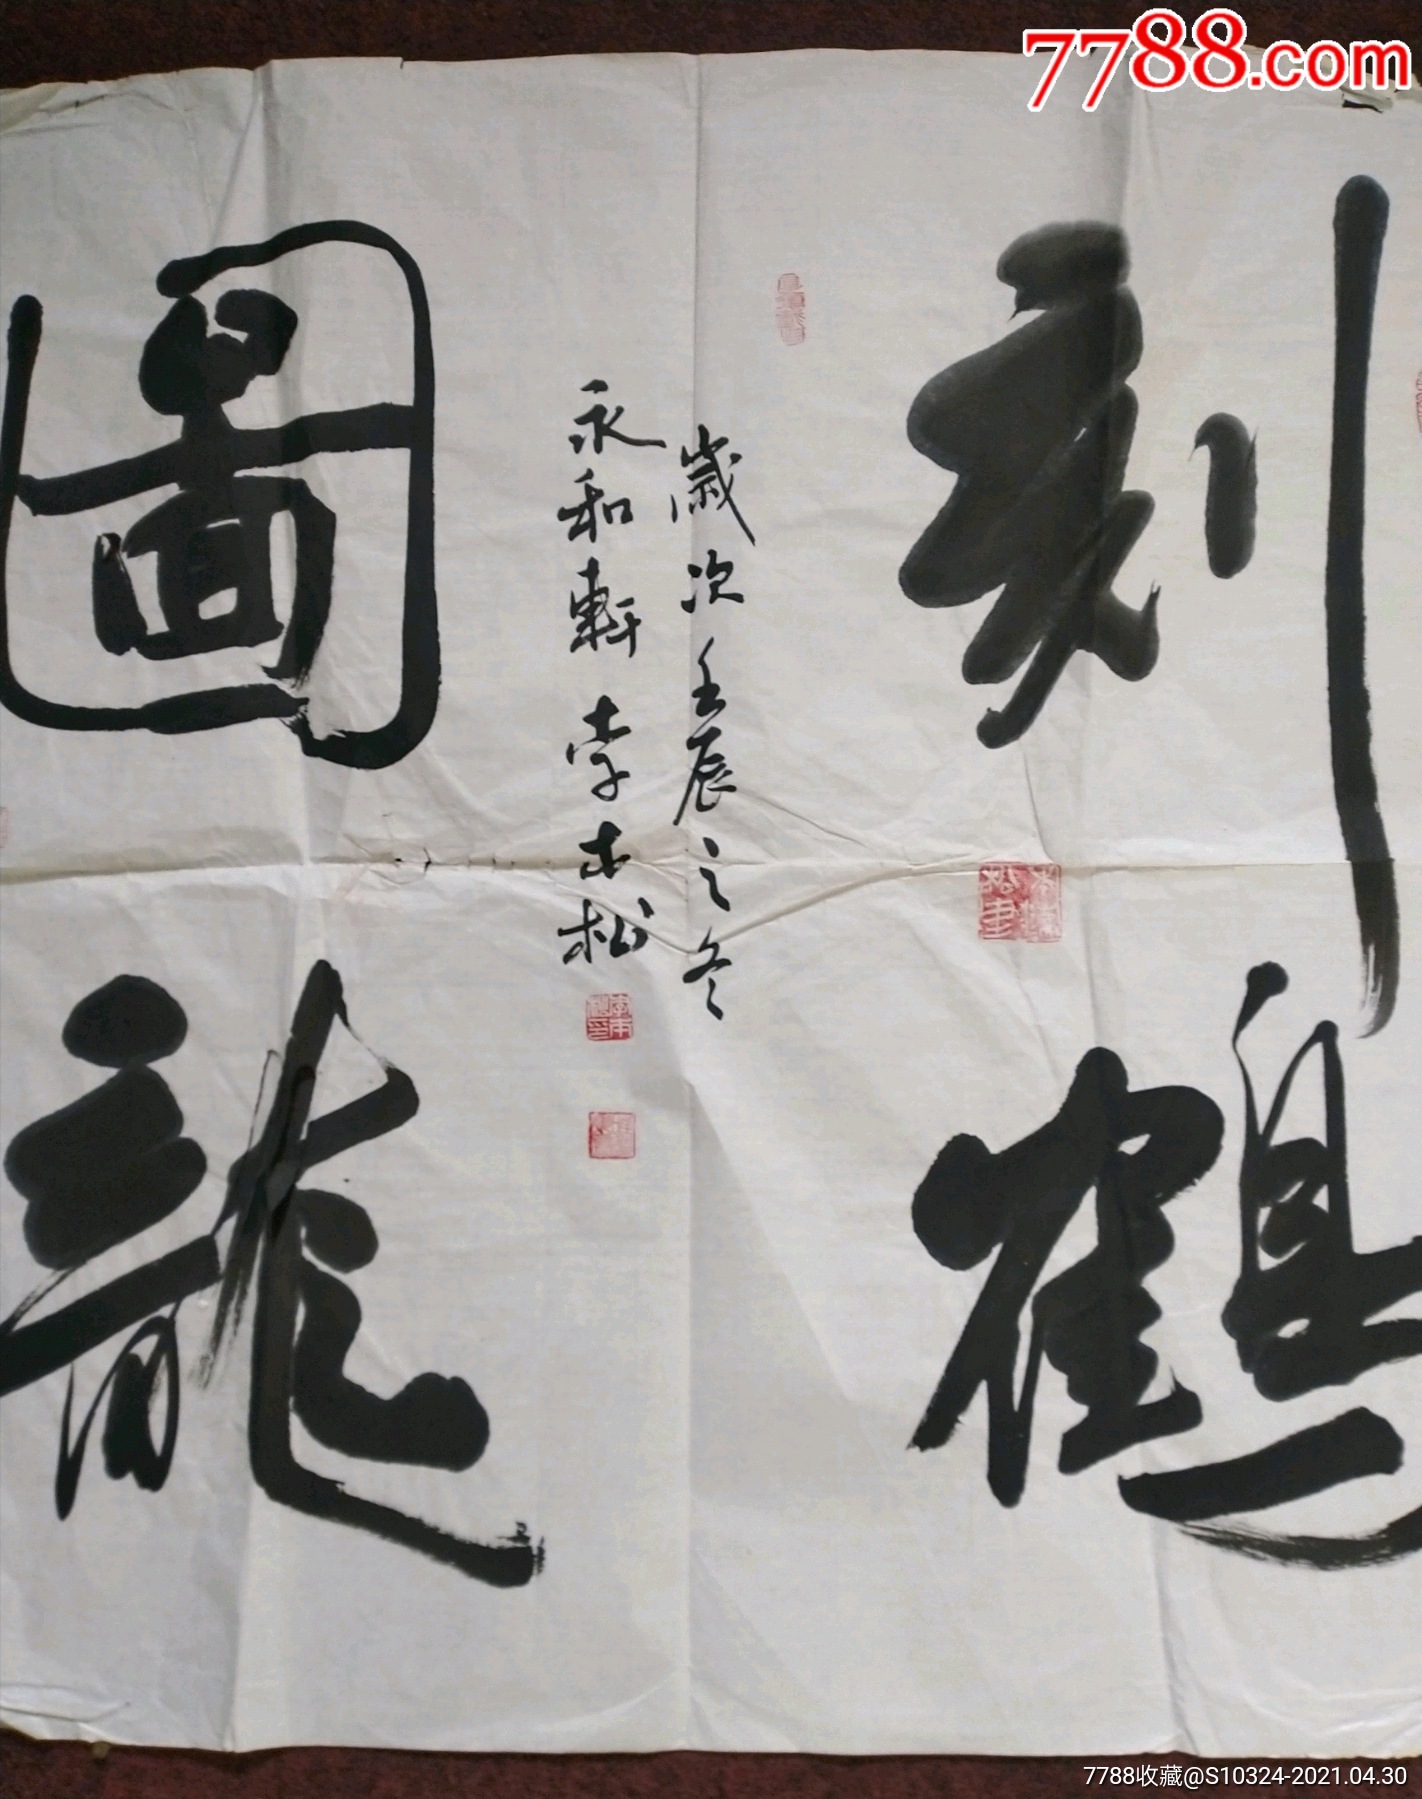 7788.com
刻鶴
圖龍
歲次壬辰之冬
永和軒 李木松
7788收藏@S10324-2021.04.30